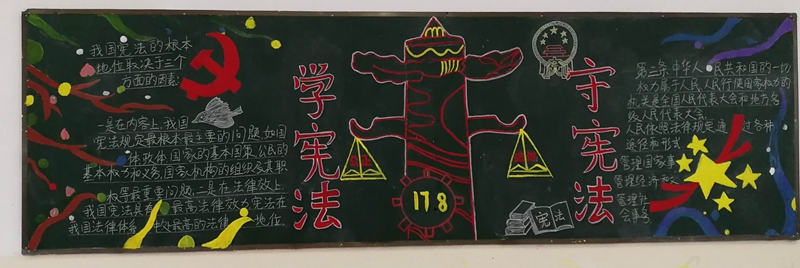 我国宪法的根本
地位取决于三个
方面的因素:
一是在内容上,我国
宪法规定最根本最重要的问题如国
体政体国家的基本国策,公民的
基本权利和义务,国家机构的组织及其职
权等最重要问题,二是在法律效上
我国宪法具有最高法律效力宪法在
我国法律体系中较最高的法律地位.
学宪法
178
守宪法
宪法
第二条中华人民共和国的一切
权力属于人民人民行使国家权力的
机关是全国人民代表大会和地方各
级人民代表大会
人民依照法律规定通过各种
途径和形式
管理国家事
管理经济和文
管理社
会事务